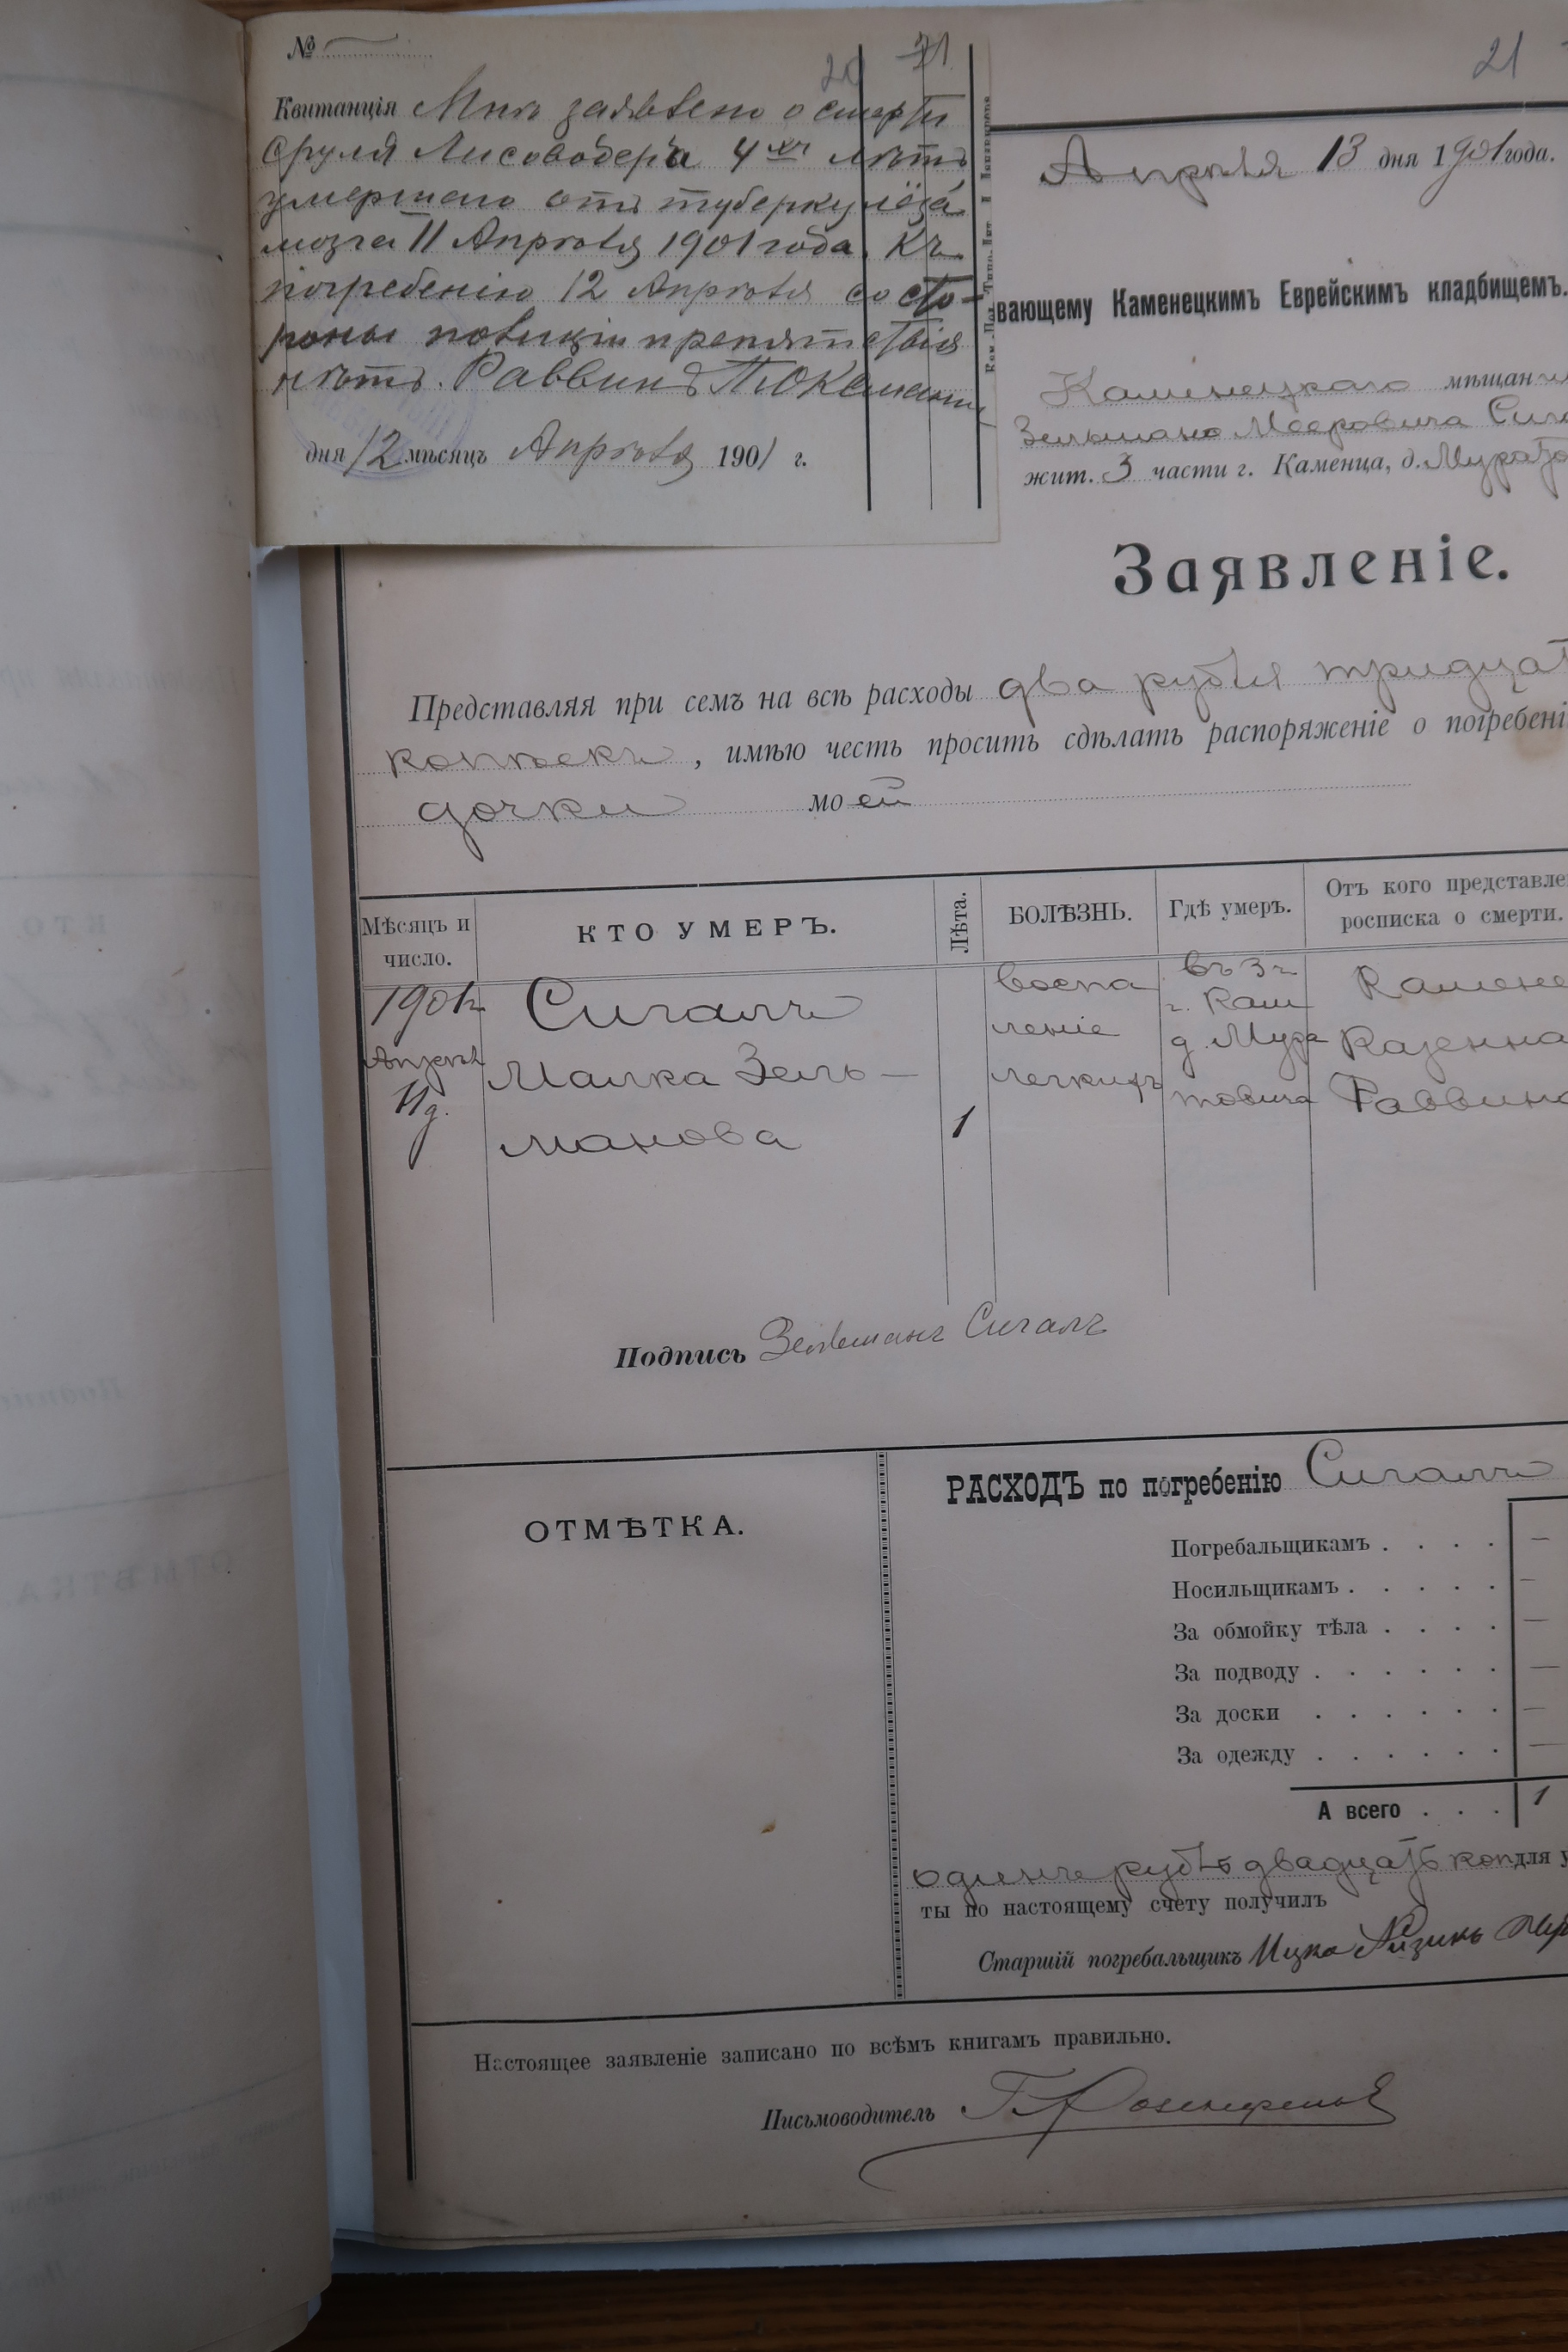 №
20 21
Квитанція Мнѣ заявлено о смерти
Сруля Лисободера 4хъ лѣтъ
умершаго отъ туберкулёза
мозга 11 Апрѣля 1901 года. Къ
погребенію 12 Апрѣля со сто-
роны полиціи препятствія
нѣтъ. Раввинъ
дня 12 мѣсяцъ Апрѣля 1901 г.
21
Апрѣля 13 дня 1901 года.
вающему Каменецкимъ Еврейскимъ кладбищемъ.
Каменецкаго мѣщани
Зельмана Мееровича Сига
жит. 3 части г. Каменца, д. Мурато
Заявленіе.
Представляя при семъ на всѣ расходы два рубля тридцат
копѣекъ, имѣю честь просить сдѣлать распоряженіе о погребені
дочки моей
Мѣсяцъ и число. КТО УМЕРЪ. Лѣта. БОЛѢЗНЬ. Гдѣ умеръ. Отъ кого представле росписка о смерти.
1901г. Сигалъ воспа въ 3ч Камене
Апрѣля г. Кам
11 д. Малка Зель- леніе д. Мура Казенна
легкихъ товича Раввина
манова 1
Подпись Зельманъ Сигалъ
ОТМѢТКА.
РАСХОДЪ по погребенію Сигалъ
Погребальщикамъ . . . . —
Носильщикамъ . . . . . —
За обмойку тѣла . . . . —
За подводу . . . . . . —
За доски . . . . . . —
За одежду . . . . . . —
А всего . . . 1
одинъ рубль двадцать коп для у
ты по настоящему счету получилъ
Старшій погребальщикъ Ицко Айзикъ
Настоящее заявленіе записано по всѣмъ книгамъ правильно.
Письмоводитель